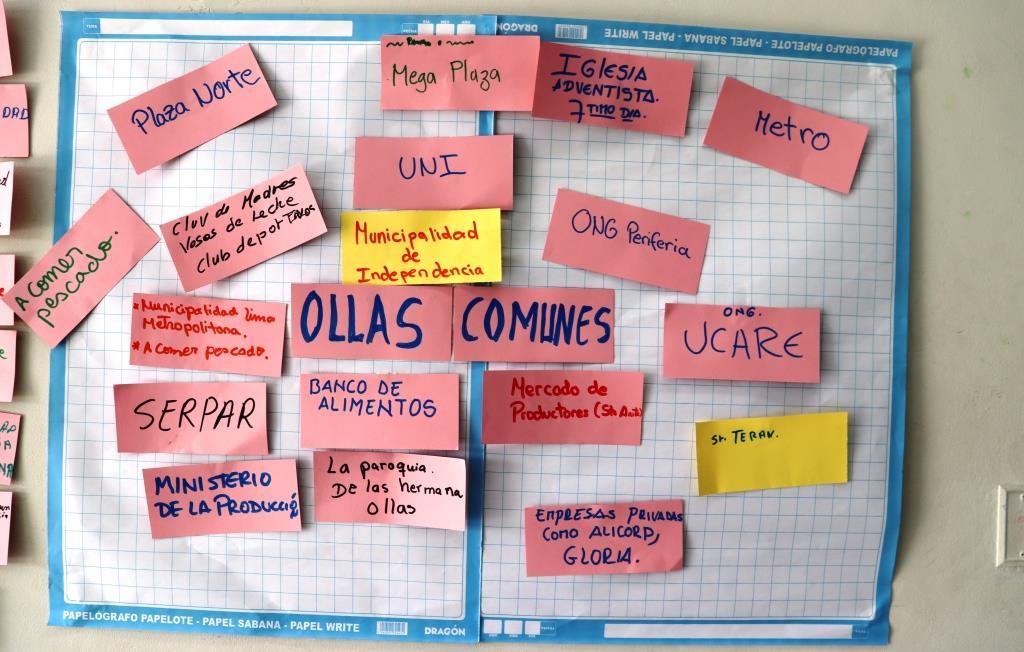 PAPELÓGRAFO PAPELOTE - PAPEL SABANA - PAPEL WRITE
DRAGÓN
Plaza Norte
Mega Plaza
IGLESIA
ADVENTISTA.
7 TIMO DIA.
Metro
UNI
Cluv de Madres
Vasos de Leche
Club deportivos
Municipalidad
de
Independencia
ONG Periferia
A comer
pescado.
*Municipalidad lima
Metropolitana.
*A comer pescado.
OLLAS COMUNES
ONG.
UCARE
SERPAR
BANCO DE
ALIMENTOS
Mercado de
Productores (Sta Anita)
Sr. TERAN.
MINISTERIO
DE LA PRODUCCIÓ
La paroquia.
De las hermana
ollas
EMPRESAS PRIVADAS
COMO ALICORP,
GLORIA.
PAPELÓGRAFO PAPELOTE - PAPEL SABANA - PAPEL WRITE
DRAGÓN